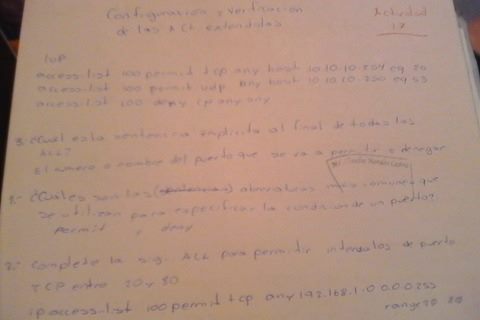 Configuracion y verificacion
de las ACL extendidas
Actividad
17
access-list 100 permit tcp any host 10.10.10.254 eq
access-list 100 permit udp any host 10.10.10.250 eq 53
access-list 100 deny ip any any
3. ¿Cual es la sentencia implicita al final de todas las
ACL?
El numero o nombre del puerto que se va a permitir o denegar
1.- ¿Cuales son las abreviaturas mas comunes que
se utilizan para especificar la condicion de un puerto?
Permit y deny
2.- Complete la sig. ACL para permitir intervalos de puerto
TCP entre 20 y 80
ip access-list 100 permit tcp any 192.168.1.0 0.0.0.255
range 20 80